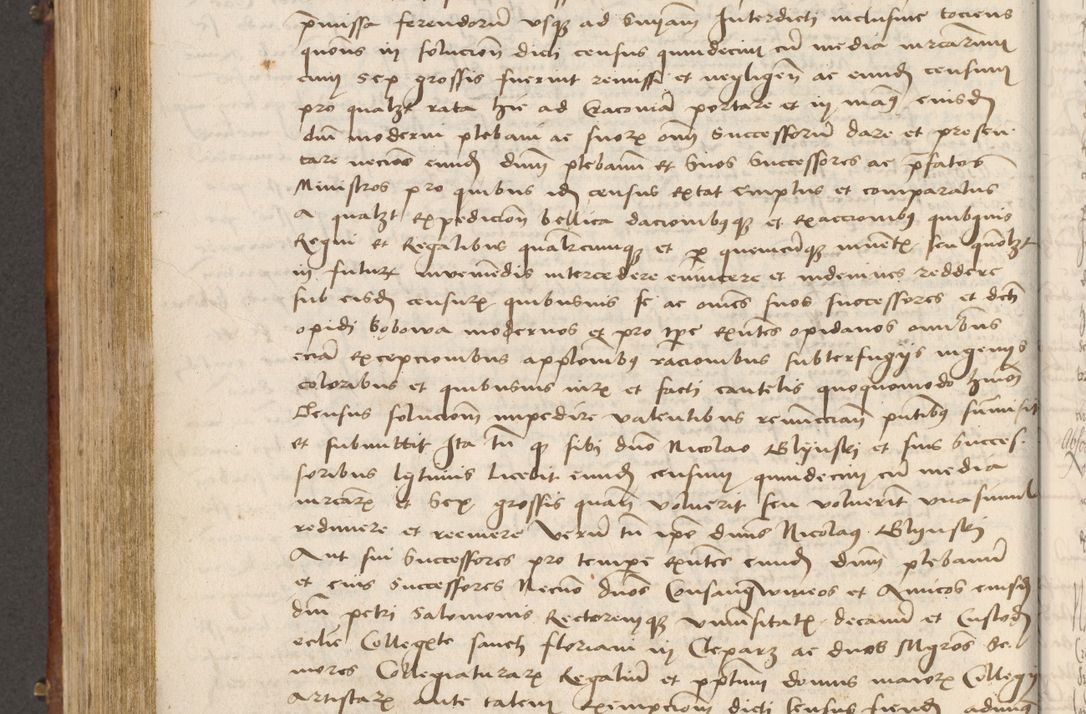 pmissa ferendorum usque ad Sniam Interdicti inclusive tociens
quoties in solucion dicti census quindecim cu media mrcarum
cum Sex grossis fuerint remissi et negligen ac eundem censum
pro qualzt rata hic ad Cracoviam portare et in man eiusdem
dni moderni plebani ac suorum oim Successorum dare et presen-
tare necnon eundem dnm plebanum et Suos Successores ac pfatos
Ministros pro quibus idem census extat emptus et comparatus
A qualzt expedicion bellica dacionibusque et exaccionibus quibusvis
Regni et Regalibus qualitercumque et per quemcumque invent seu quomolzt
in futur inveniendis intercedere evincere et indemnes reddere
sub eisdem censuris quibusvis se ac omnes suos successores et dicti
opidi bobowa modernos et pro tpe existentes opidanos omnibus
eciam excepcionibus applonibus racionibus subterfugiis ingeniis
coloribus et quibusvis iuris et facti cautelis quoquomodo hmoi
Census solucioni impedire valentibus renuncciam putibus sumisit
et submittit Ita tn q sibi dno Nicolao Glijnski et suis Succes-
soribus lytimis Licebit eundem censum quindecim cu media
mrcarum et Sex grossis quam voluerit seu voluerint una simul
redimere et reemere Verum tn ipse dnus Nicolaus Glijnski
Aut sui Successores pro tempore existentes eundem dnm plebanum
et eius Successores Necnon dnos Consanguineos et Amicos eiusdem
dni petri Salomonis Rectoremque Universitatis decanum et Custodem
ecclie Collegxte sancti floriani in Cleparz ac dnos Mgros Se-
niores Collegiaturarum Regalium et ppositum domus maioris Collegii
Artistarum ante talem exempcionem dicti Census fiendam